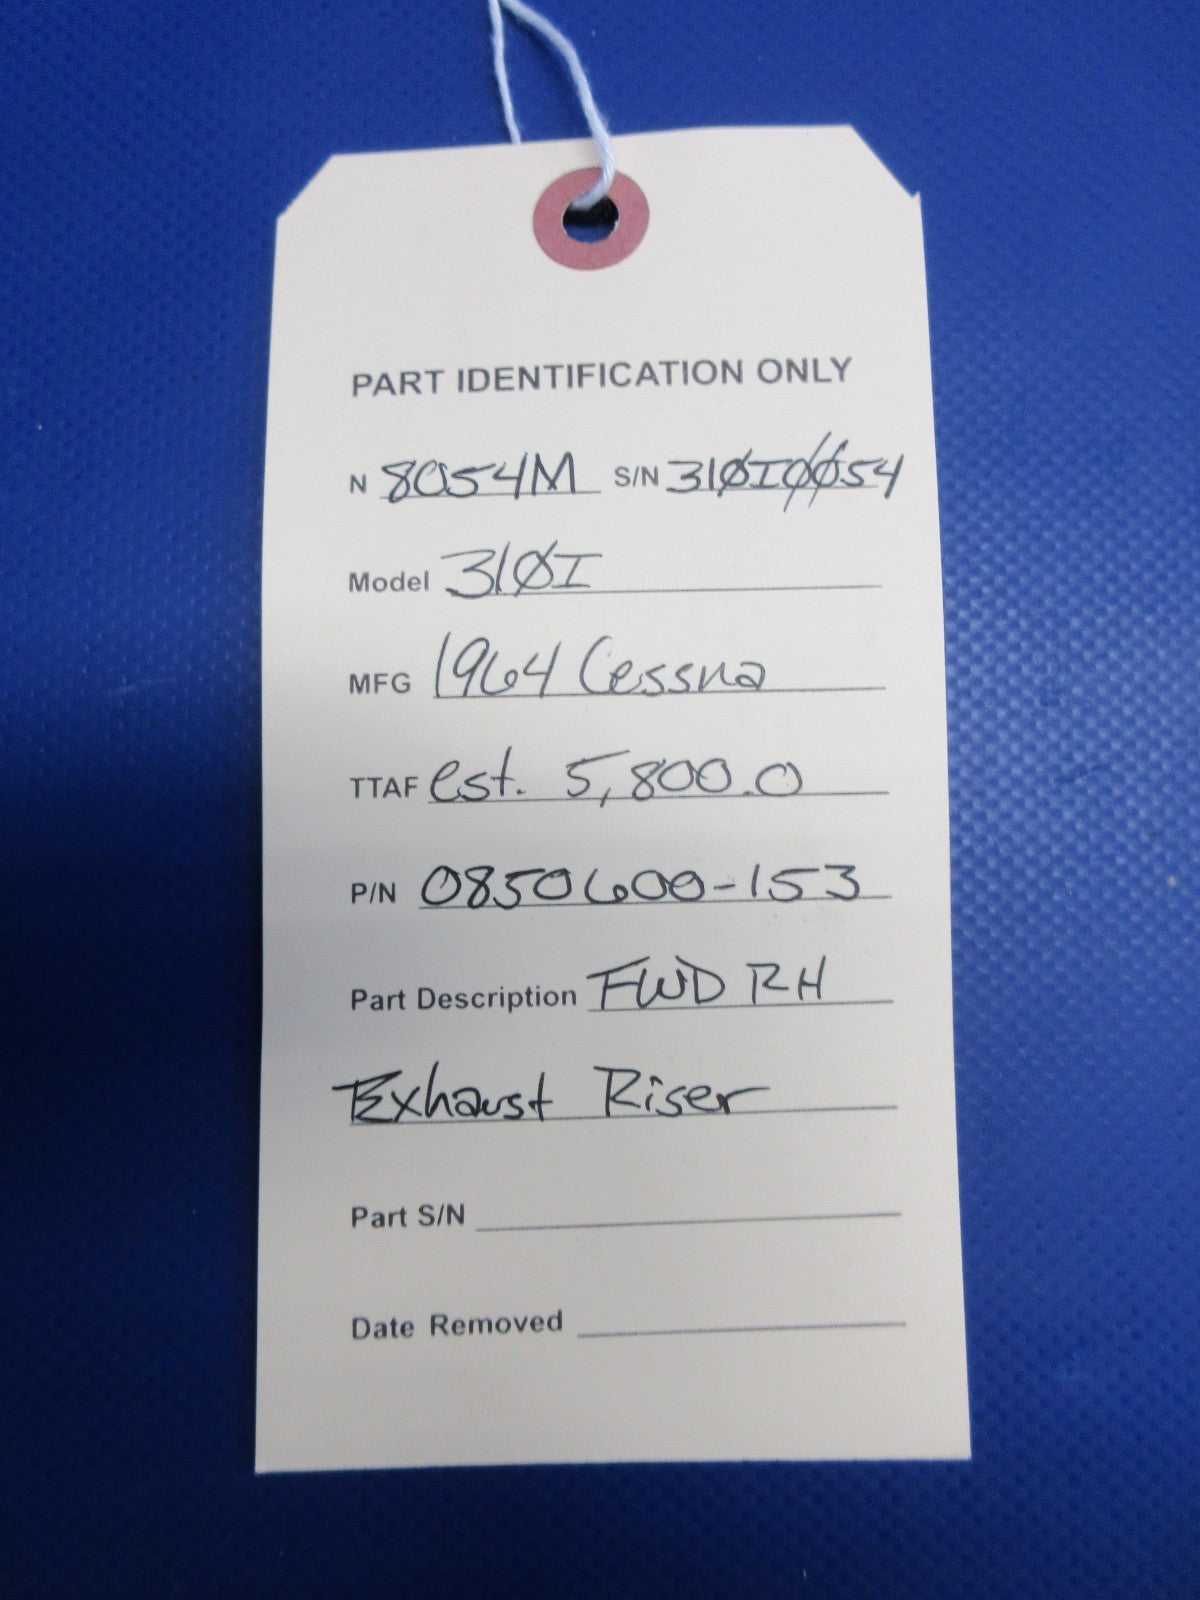 PART IDENTIFICATION ONLY
N 8054M S/N 310I0054
Model 310I
MFG 1964 Cessna
TTAF est. 5,800.0
P/N 0850600-153
Part Description FWD RH
Exhaust Riser
Part S/N
Date Removed